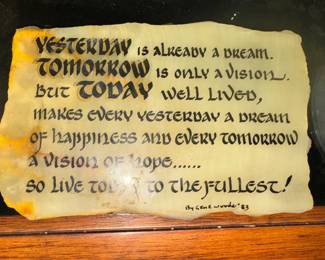 YESTERDAY is ALREADY A DREAM.
TOMORROW is ONLY A VISION.
BUT TODAY WELL LIVED,
MAKES EVERY YESTERDAY A DREAM
OF HAPPINESS AND EVERY TOMORROW
A VISION OF HOPE......
SO LIVE TODAY TO THE FULLEST!
By GENE WOODS '83